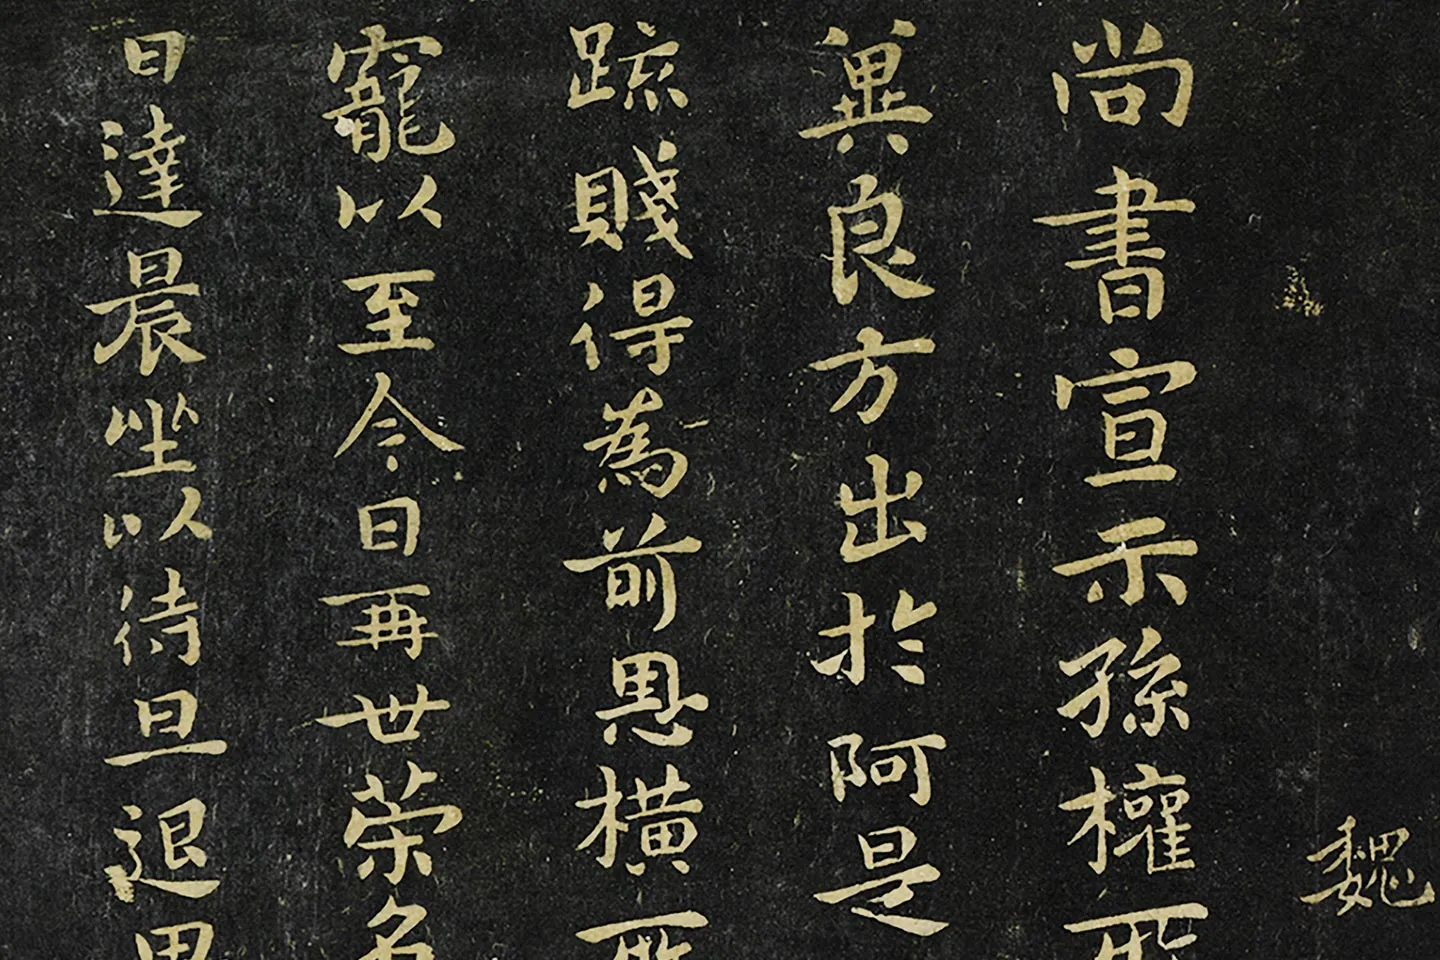 魏
尚書宣示孫權所
異良方出於阿是
踈賤得為前恩橫所
寵以至今日再世榮名
日達晨坐以待旦退思